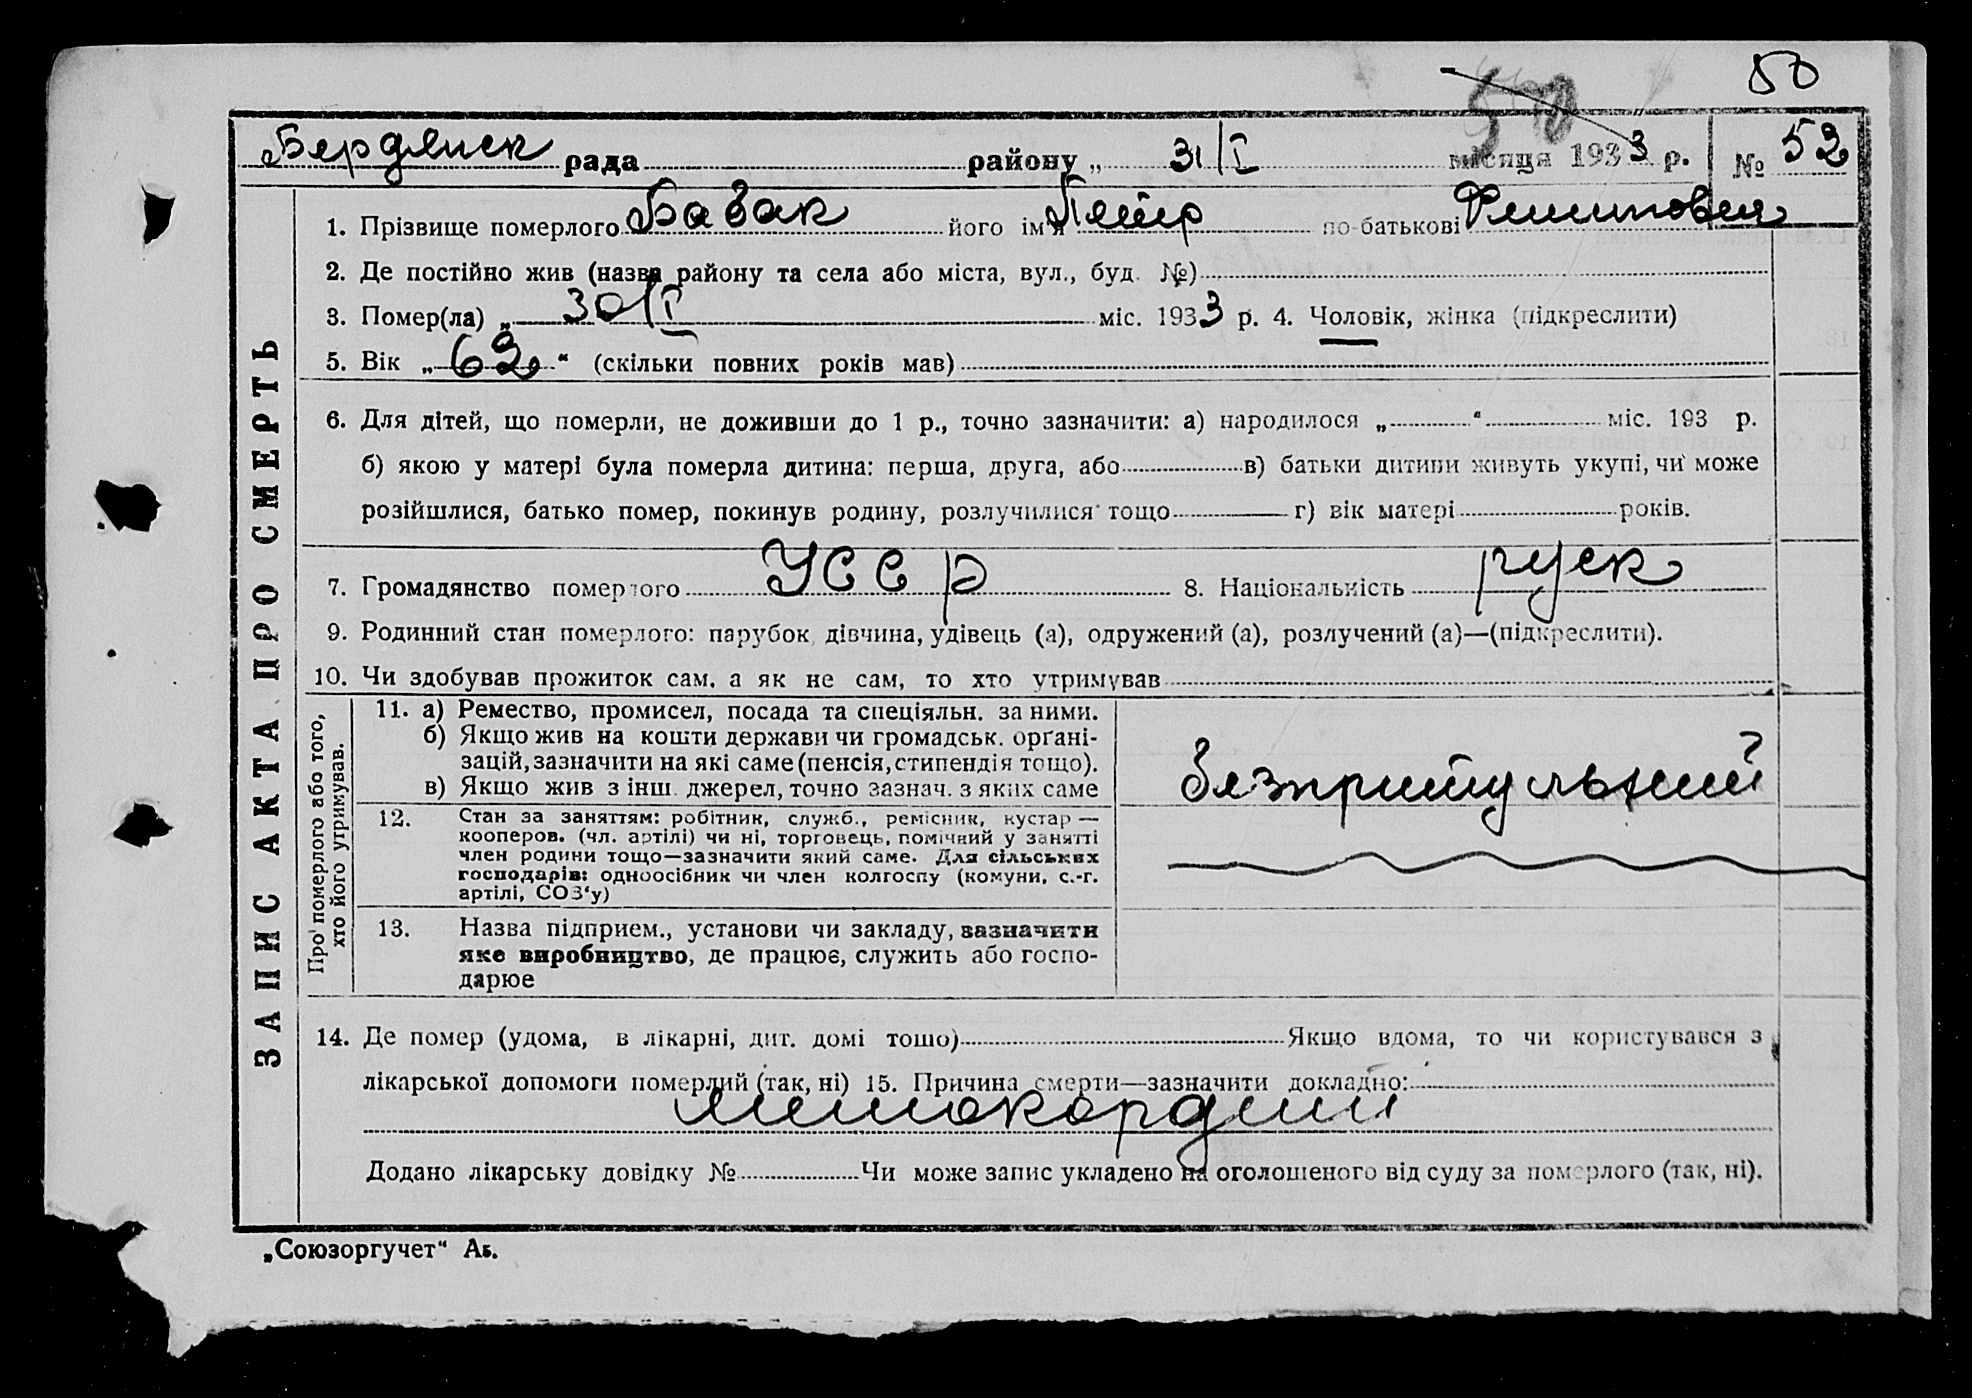 50
Бердянск рада района „ 31/I місяця 1933 р. № 52
1. Прізвище померлого Бабак його ім'я Петр по-батькові Филипович
2. Де постійно жив (назва району та села або міста, вул., буд. №)
3. Помер(ла) „ 30/I міс. 1933 р. 4. Чоловік, жінка (підкреслити)
5. Вік „ 62 “ (скільки повних років мав)
6. Для дітей, що померли, не доживши до 1 р., точно зазначити: а) народилося „ “ міс. 193 р.
б) якою у матері була померла дитина: перша, друга, або в) батьки дитини живуть укупі, чи може
розійшлися, батько помер, покинув родину, розлучилися тощо г) вік матері років.
7. Громадянство померлого УССР 8. Національність руск
9. Родинний стан померлого: парубок, дівчина, удівець (а), одружений (а), розлучений (а)—(підкреслити).
10. Чи здобував прожиток сам, а як не сам, то хто утримував
ЗАПИС АКТА ПРО СМЕРТЬ
Про померлого або того,
хто його утримував.
11. а) Ремество, промисел, посада та спеціяльн. за ними.
б) Якщо жив на кошти держави чи громадськ. органі-
зацій, зазначити на які саме (пенсія, стипендія тощо).
в) Якщо жив з інш. джерел, точно зазнач. з яких саме
безпритульний
12. Стан за заняттям: робітник, служб., ремісник, кустар —
кооперов. (чл. артілі) чи ні, торговець, помічний у занятті
член родини тощо—зазначити який саме. Для сільських
господарів: одноосібник чи член колгоспу (комуни, с.-г.
артілі, СОЗ'у)
13. Назва підприєм., установи чи закладу, зазначити
яке виробництво, де працює, служить або госпо-
дарює
14. Де помер (удома, в лікарні, дит. домі тощо) Якщо вдома, то чи користувався з
лікарської допомоги померлий (так, ні) 15. Причина смерти—зазначити докладно:
Додано лікарську довідку № Чи може запис укладено на оголошеного від суду за померлого (так, ні).
„Союзоргучет“ Аб.